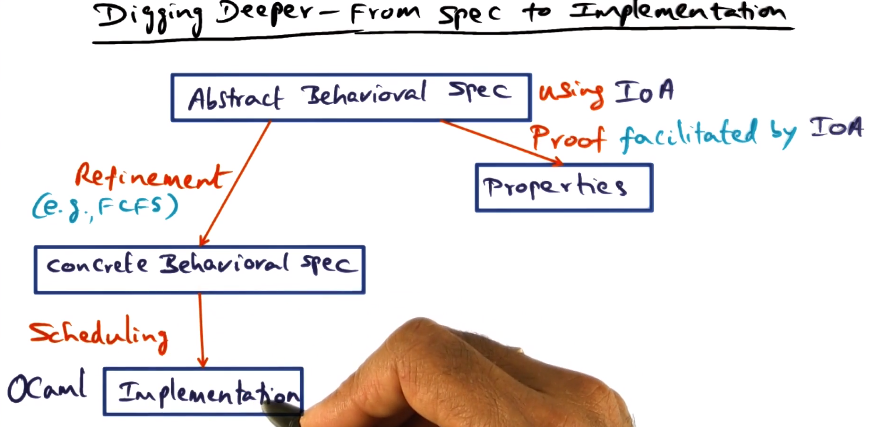 Digging Deeper - From spec to Implementation
Abstract Behavioral spec using IOA
Proof facilitated by IOA
Refinement
(e.g., FCFS)
Properties
Concrete Behavioral spec
Scheduling
OCaml Implementation